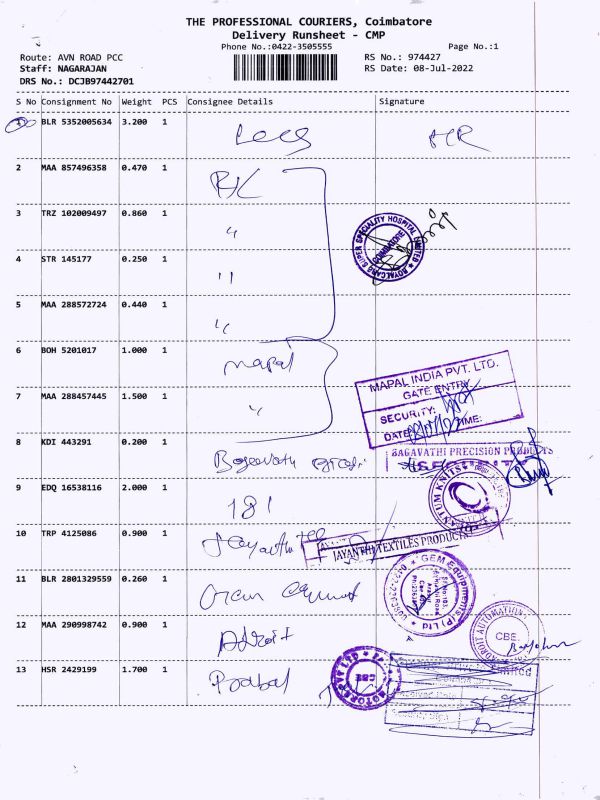 THE PROFESSIONAL COURIERS, Coimbatore
Delivery Runsheet - CMP
Phone No.:0422-3505555
Page No.:1
Route: AVN ROAD PCC
RS No.: 974427
Staff: NAGARAJAN
RS Date: 08-Jul-2022
DRS No.: DCJB97442701
S No Consignment No Weight PCS Consignee Details Signature
1 BLR 5352005634 3.200 1
2 MAA 857496358 0.470 1
3 TRZ 102009497 0.860 1 〃
ROYALCARE SUPER SPECIALITY HOSPITAL LIMITED
COIMBATORE
4 STR 145177 0.250 1 〃
5 MAA 288572724 0.440 1 〃
6 BOH 5201017 1.000 1 mapal
MAPAL INDIA PVT. LTD.
GATE ENTRY
7 MAA 288457445 1.500 1 〃
SECURITY:
DATE TIME:
8 KDI 443291 0.200 1 Bagavathi
BAGAVATHI PRECISION PRODUCTS
9 EDQ 16538116 2.000 1 181
QUANTUM KNITS
10 TRP 4125086 0.900 1 Jayanthi
JAYANTHI TEXTILES PRODUCTS
11 BLR 2801329559 0.260 1
GEM Equipments (P) Ltd
12 MAA 290998742 0.900 1 Adroit
ADROIT AUTOMATION
CBE.
13 HSR 2429199 1.700 1
CBE
Limited